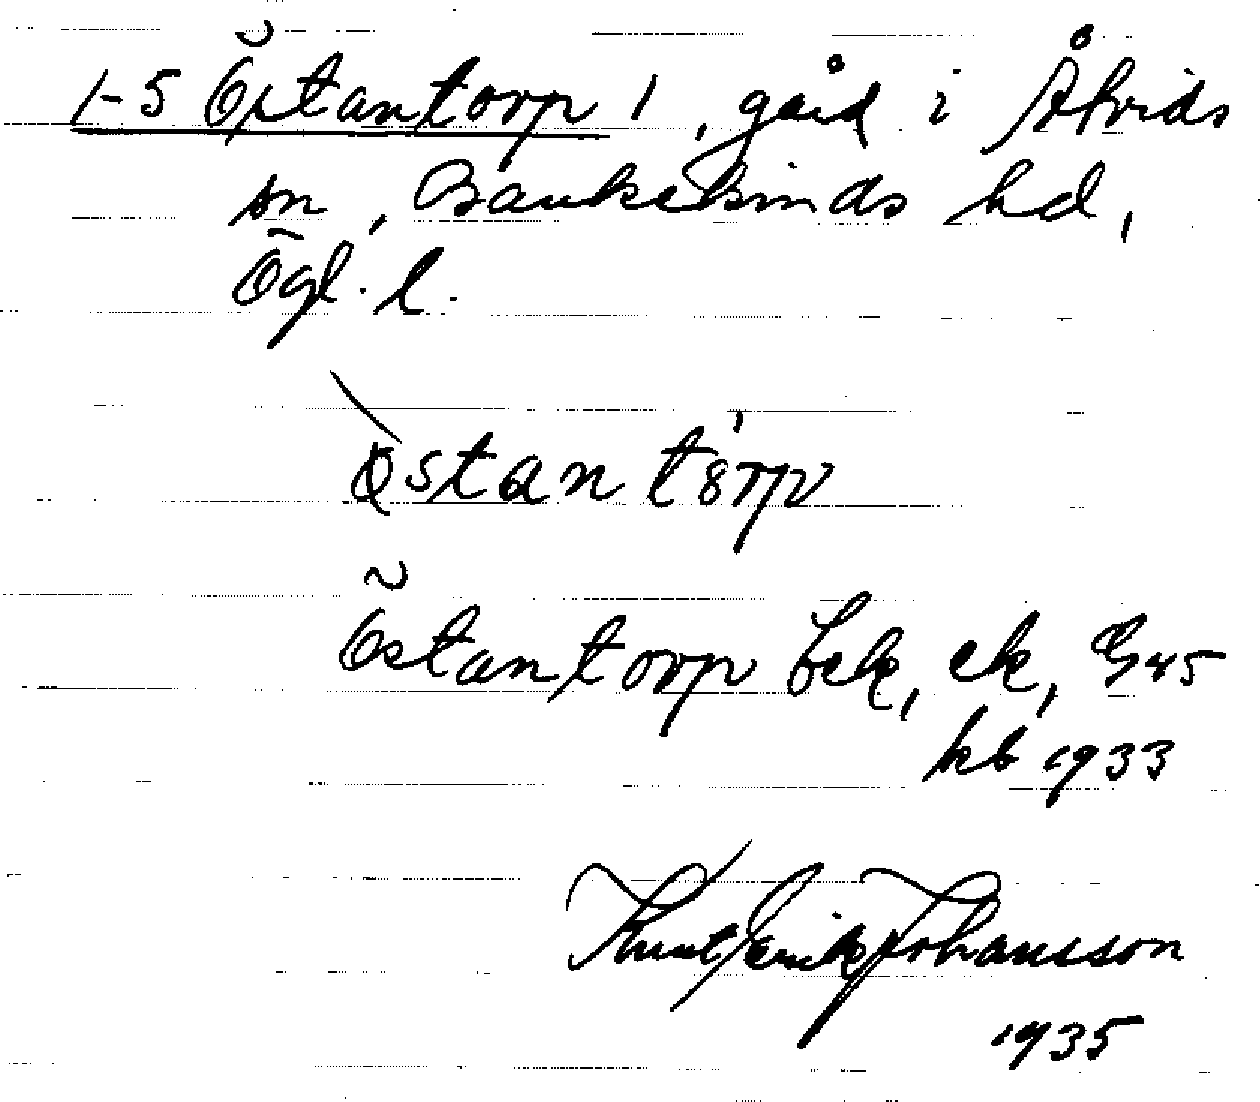 1-5 Östantorp 1, gård i Åtvids
sn, Bankekinds hd,
Ögl. l.
Östantörp
Östantorp Eek, ek, G 45
kb 1933
Knut Erik Johansson
1935